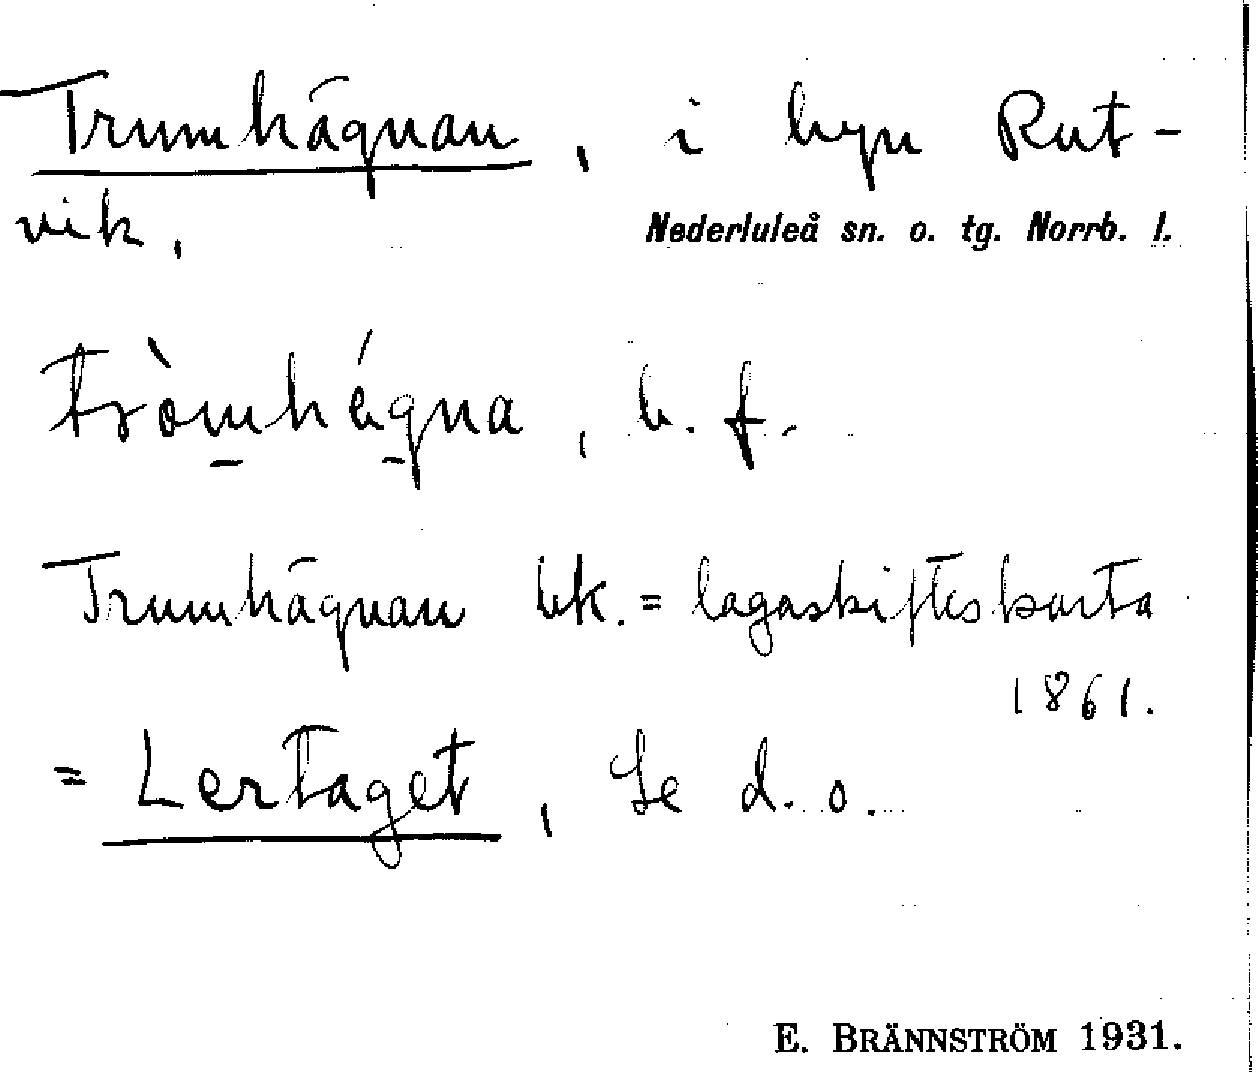 Trumhägnan, i byn Rut-
vik,
Nederluleå sn. o. tg. Norrb. l.
tròmhégna, b. f.
Trumhägnan bk. = lagaskifteskarta
1861.
= Lertaget, Se d. o.
E. BRÄNNSTRÖM 1931.